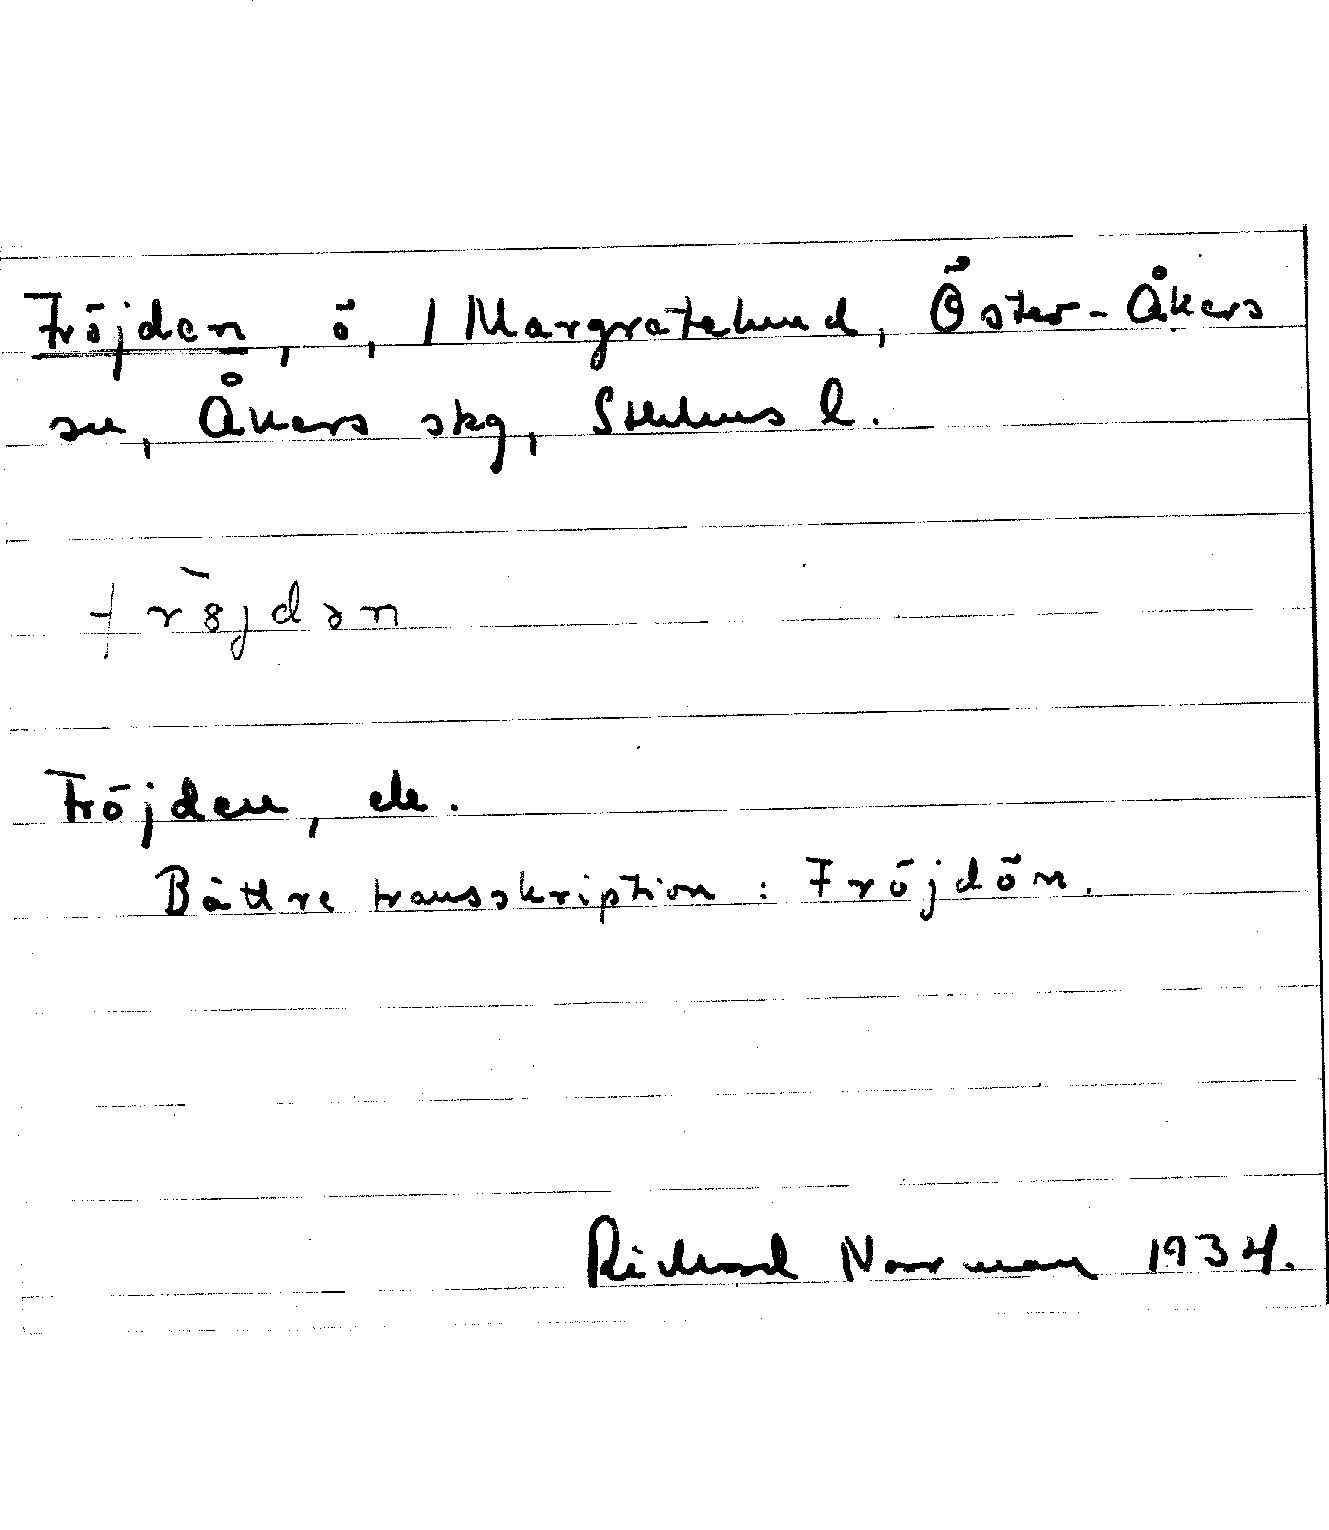 Fröjden, ö, / Margretelund, Öster-Åkers
sn, Åkers skg, Sthlms l.
frøjdən
Fröjden, ek.
Bättre transskription: Fröjdön.
Richard Norrman 1934.